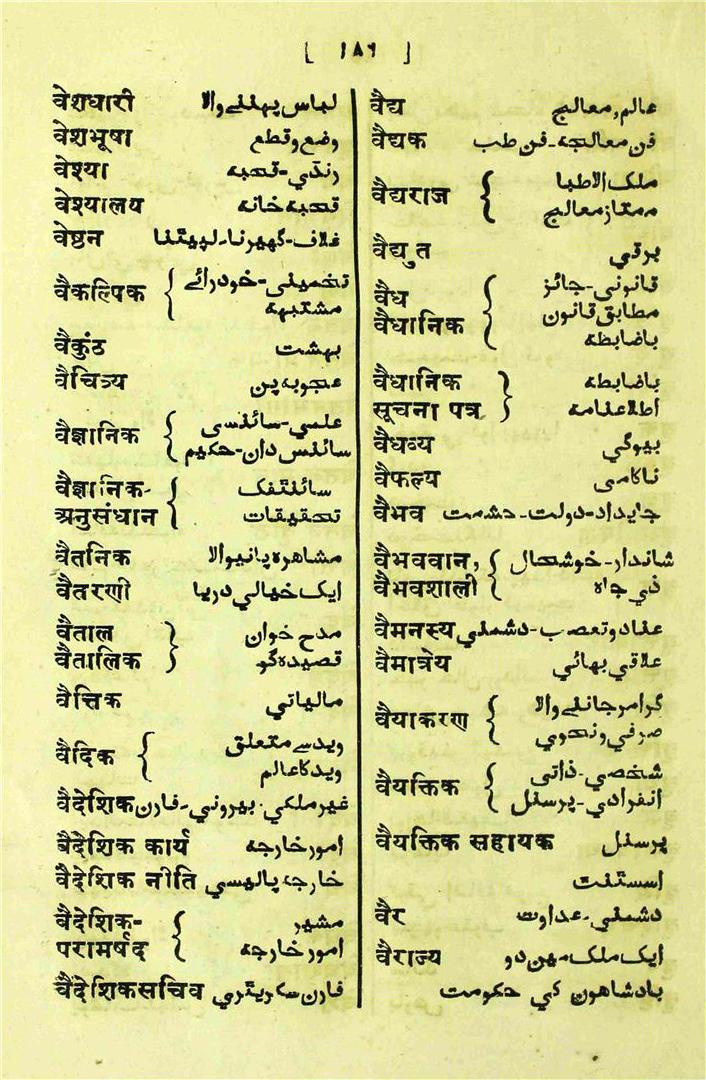 [ ۱۸۶ ]
वेशधारी لباس پہننے والا
वेशभूषा وضع و قطع
वेश्या رنڈی-قحبہ
वेश्यालय قحبہ خانہ
वेष्ठन غلاف-گھیرنا-لپیٹنا
वैकल्पिक { تخمینی-خودرائے
مشتبہہ
वैकुंठ بہشت
वैचित्र्य عجوبہ پن
वैज्ञानिक { علمی-سائنسی
سائنس دان-حکیم
वैज्ञानिक- { سائنٹفک
अनुसंधान تحقیقات
वैतनिक مشاھرہ پانیوالا
वैतरणी ایک خیالی دریا
वैताल } مدح خوان
वैतालिक قصیدہ گو
वैत्तिक مالیاتی
वैदिक { وید سے متعلق
وید کا عالم
वैदेशिक غیر ملکی-بیرونی-فارن
वैदेशिक कार्य امور خارجہ
वैदेशिक नीति خارجہ پالیسی
वैदेशिक- { مشیر
परामर्षद امور خارجہ
वैदेशिकसचिव فارن سکریٹری
वैद्य عالم, معالج
वैद्यक فن معالجہ-فن طب
वैद्यराज { ملک الاطبا
ممتاز معالج
वैद्युत برقی
वैध { قانونی-جائز
वैधानिक مطابق قانون
باضابطہ
वैधानिक } باضابطہ
सूचना पत्र اطلاعنامہ
वैधव्य بیوگی
वैफल्य ناکامی
वैभव جایداد-دولت-حشمت
वैभववान, { شاندار-خوشحال
वैभवशाली ذی جاہ
वैमनस्य عناد و تعصب-دشمنی
वैमात्रेय علاقی بھائی
वैयाकरण { گرامر جاننے والا
صرفی و نحوی
वैयक्तिक { شخصی-ذاتی
انفرادی-پرسنل
वैयक्तिक सहायक پرسنل
اسسٹنٹ
वैर دشمنی-عداوت
वैराज्य ایک ملک مین دو
بادشاھون کی حکومت